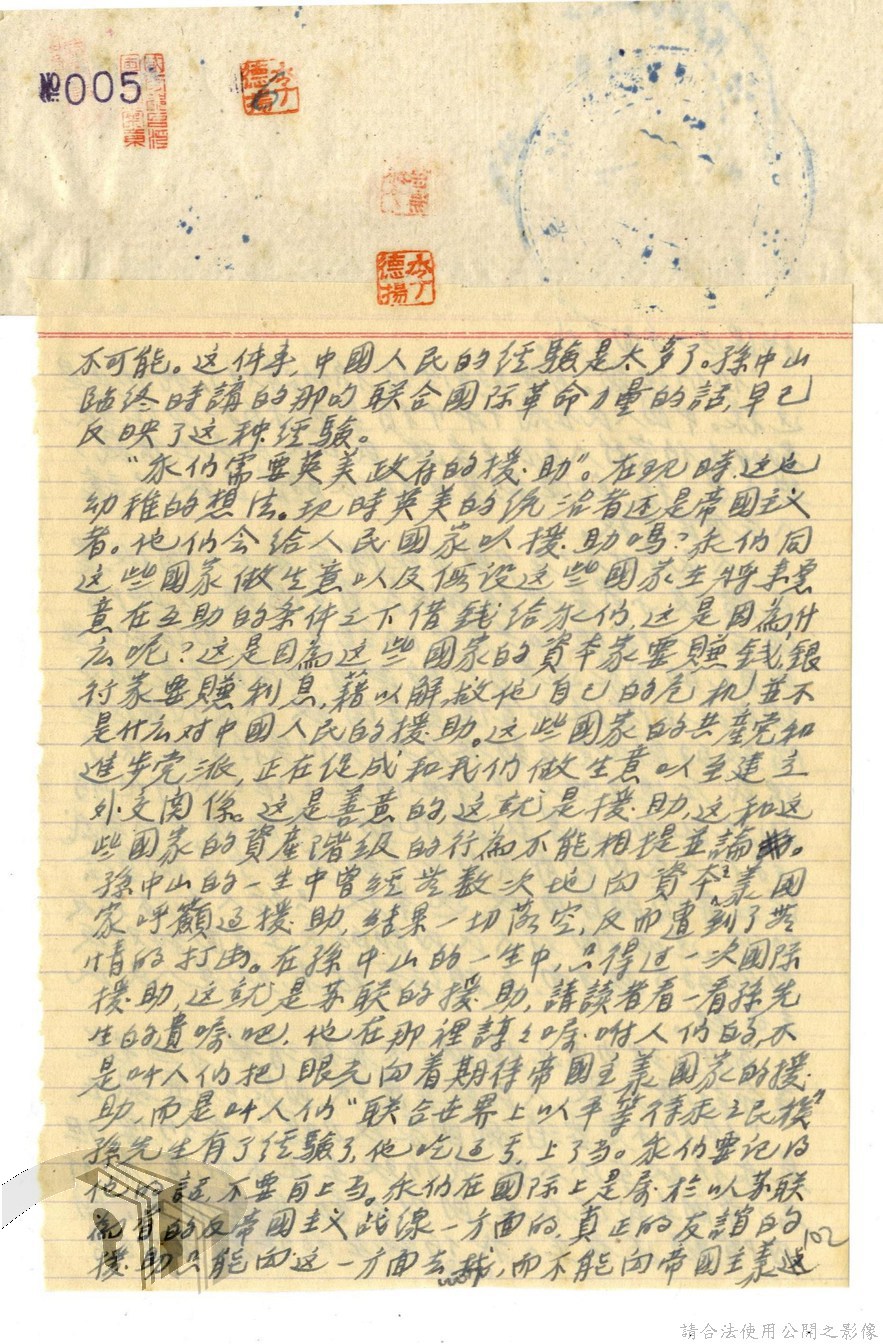 №005
李丁
德揚
李丁
德揚
不可能。这件事,中國人民的経驗是太多了。孫中山
臨终時講的那句联合國际革命力量的話,早已
反映了这种経驗。
“我们需要英美政府的援助”。在现時,这也
幼稚的想法。现時英美的统治者还是帝國主义
者。他们会给人民國家以援助嗎?我们同
这些國家做生意以及假设这些國家在將来愿
意在互助的条件之下借錢给我们,这是因為什
么呢?这是因為这些國家的資本家要賺錢,銀
行家要賺利息,藉以解救他自己的危机並不
是什么对中國人民的援助。这些國家的共產党和
進步党派,正在促成和我们做生意以至建立
外交関係。这是善意的,这就是援助,这和这
些國家的資產階級的行為不能相提並論。
孫中山的一生中曾経無数次地向資本主義國
家呼籲过援助,结果一切落空,反而遭到了無
情的打击。在孫中山的一生中,只得过一次國际
援助,这就是苏联的援助,請讀者看一看孫先
生的遺嘱吧,他在那裡諄々嘱咐人们的,不
是叫人们把眼光向着期待帝國主義國家的援
助,而是叫人们“联合世界上以平等待我之民族”
孫先生有了経驗了,他吃过亏,上了当。我们要記得
他的話,不要再上当。我们在國际上是属於以苏联
為首的反帝國主义战線一方面的,真正的友誼的
援助只能向这一方面去找,而不能向帝國主義这
102
請合法使用公開之影像